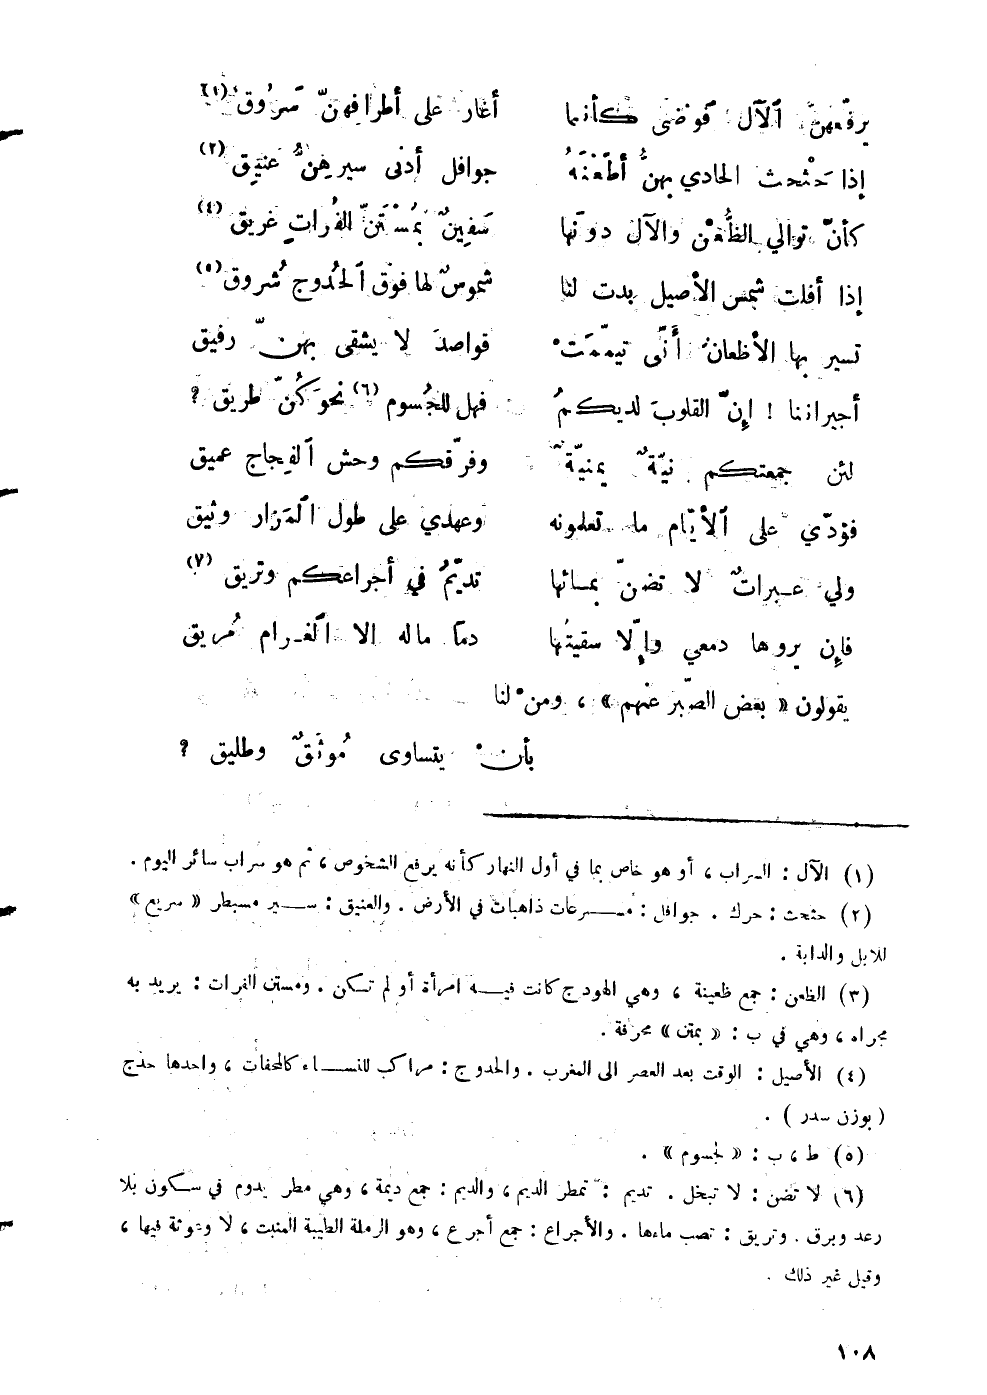 يرفّعهنّ الآل فوضى كأنما أغار على أطرافهنّ سَرُوق (١)
إذا حَثْحث الحادي بهنُّ أطَعْنَهُ جوافل أدنى سيرهنُّ عنيق (٢)
كأنّ توالي الظُّعْن والآل دونها سَفينٌ بمُسْتَنّ الفُرات غريق (٤)
إذا أفلت شمس الأصيل بدت لنا شموسٌ لها فوق الحُدوج شروق (٥)
تسير بها الأظعانُ أَنَّى تيمّمتْ قواصدَ لا يشقى بهنّ رفيق
أجيراننا ! إنّ القلوبَ لديكمُ فهل للجُسوم (٦) نحوَكُنّ طريق ؟
لئن جمعتكم نيّةٌ يمنيّةٌ وفرّقكم وحش الفِجاج عميق
فؤدّي على الأيّام ما تعلمونه وعهدي على طول المَزار وثيق
ولي عبراتٌ لا تضنّ بمائها تديّمُ في أجراعكم وتريق (٧)
فإن يروها دمعي وإلّا سقيتُها دمًا ماله الا الغرام مُريق
يقولون « بعض الصّبر عنهم » ، ومنْ لنا
بأنْ يتساوى مُوثَقٌ وطليق ؟
(١) الآل : السراب ، أو هو خاص بما في أول النهار كأنه يرفع الشخوص ، ثم هو سراب سائر اليوم .
(٢) حثحث : حرك . جوافل : مُسرعات ذاهبات في الأرض . والعنيق : سير مسبطر « سريع »
للابل والدابة .
(٣) الظعن : جمع ظعينة ، وهي الهودج كانت فيه امرأة أو لم تكن . ومستن الفرات : يريد به
مجراه ، وهي في ب : « بمتن » محرفة .
(٤) الأصيل : الوقت بعد العصر الى المغرب . والحدوج : مراكب للنساء كالمحفات ، واحدها حدج
( بوزن سدر ) .
(٥) ط ، ب : « لجسوم » .
(٦) لا تضن : لا تبخل . تديم : تمطر الديم ، والديم : جمع ديمة ، وهي مطر يدوم في سكون بلا
رعد وبرق . وتريق : تصب ماءها . والأجراع : جمع أجرع ، وهو الرملة الطيبة المنبت ، لا وعوثة فيها ،
وقيل غير ذلك .
١٠٨